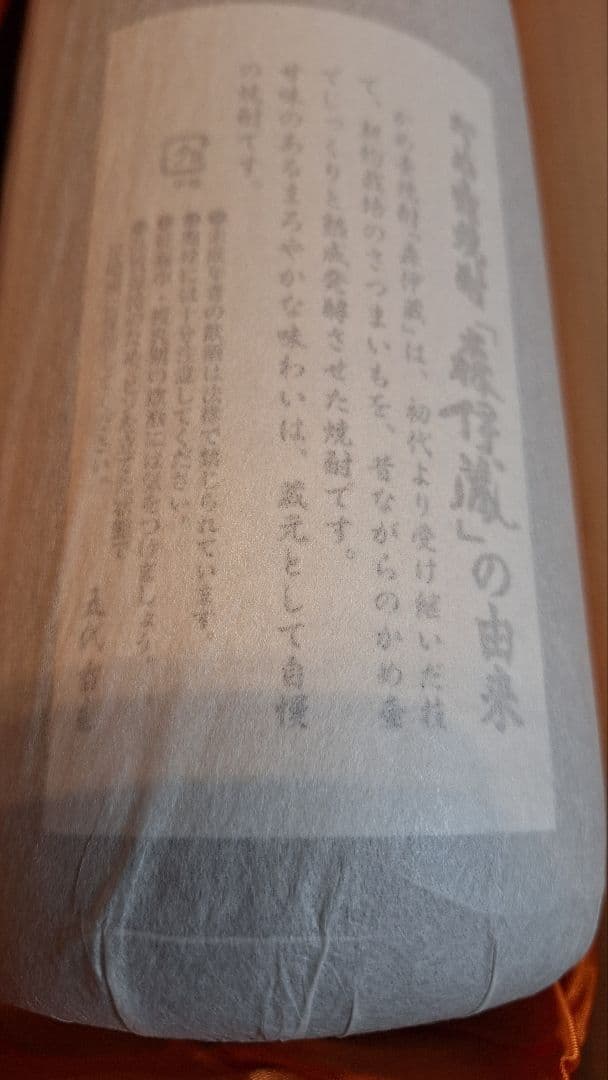 かめ壺焼酎「森伊蔵」の由来
かめ壺焼酎「森伊蔵」は、初代より受け継いだ技
て、契約栽培のさつまいもを、昔ながらのかめ壺
でじっくりと熟成発酵させた焼酎です。
甘味のあるまろやかな味わいは、蔵元として自慢
の焼酎です。
年の飲酒は法律で禁じられています。
には十分注意してください。
中・授乳期の飲酒には気をつけましょう。
五代